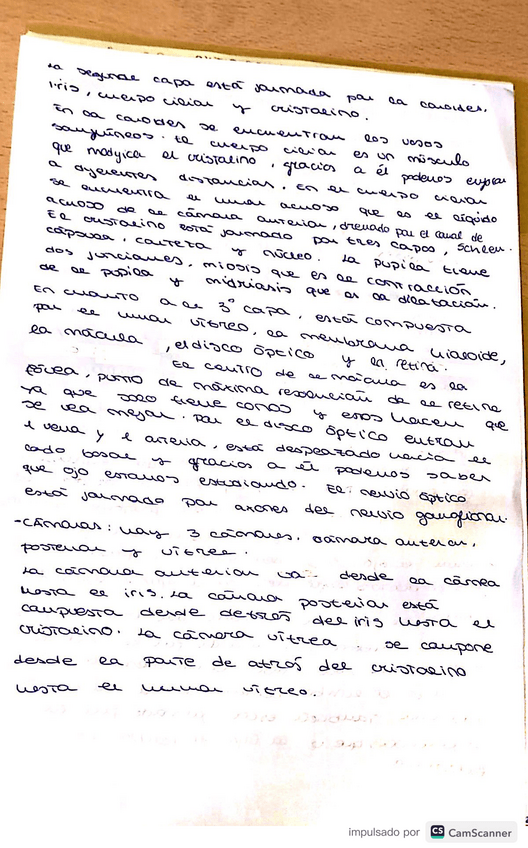 La segunda capa está formada por la coroides,
iris, cuerpo ciliar y cristalino.
En la coroides se encuentran los vasos
sanguíneos. El cuerpo ciliar es un músculo
que modifica el cristalino, gracias a él podemos enfocar
a diferentes distancias. En el cuerpo ciliar
se encuentra el humor acuoso que es el líquido
acuoso de la cámara anterior, drenado por el canal de
El cristalino está formado por tres capas, Schlem.
cápsula, corteza y núcleo. La pupila tiene
dos funciones, miosis que es la contracción
de la pupila y midriasis que es la dilatación.
En cuanto a la 3ª capa, está compuesta
por el humor vítreo, la membrana hialoide,
la mácula, el disco óptico y la retina.
El centro de la mácula es la
fóvea, punto de máxima resolución de la retina
ya que solo tiene conos y esos hacen que
se vea mejor. Por el disco óptico entran
1 vena y 1 arteria, está desplazado hacia el
lado nasal y gracias a él podemos saber
que ojo estamos estudiando. El nervio óptico
está formado por axones del nervio ganglionar.
-Cámaras: hay 3 cámaras. cámara anterior,
posterior y vítrea.
La cámara anterior va desde la córnea
hasta el iris. La cámara posterior está
compuesta desde detrás del iris hasta el
cristalino. La cámara vítrea se compone
desde la parte de atrás del cristalino
hasta el humor vítreo.
impulsado por CS CamScanner